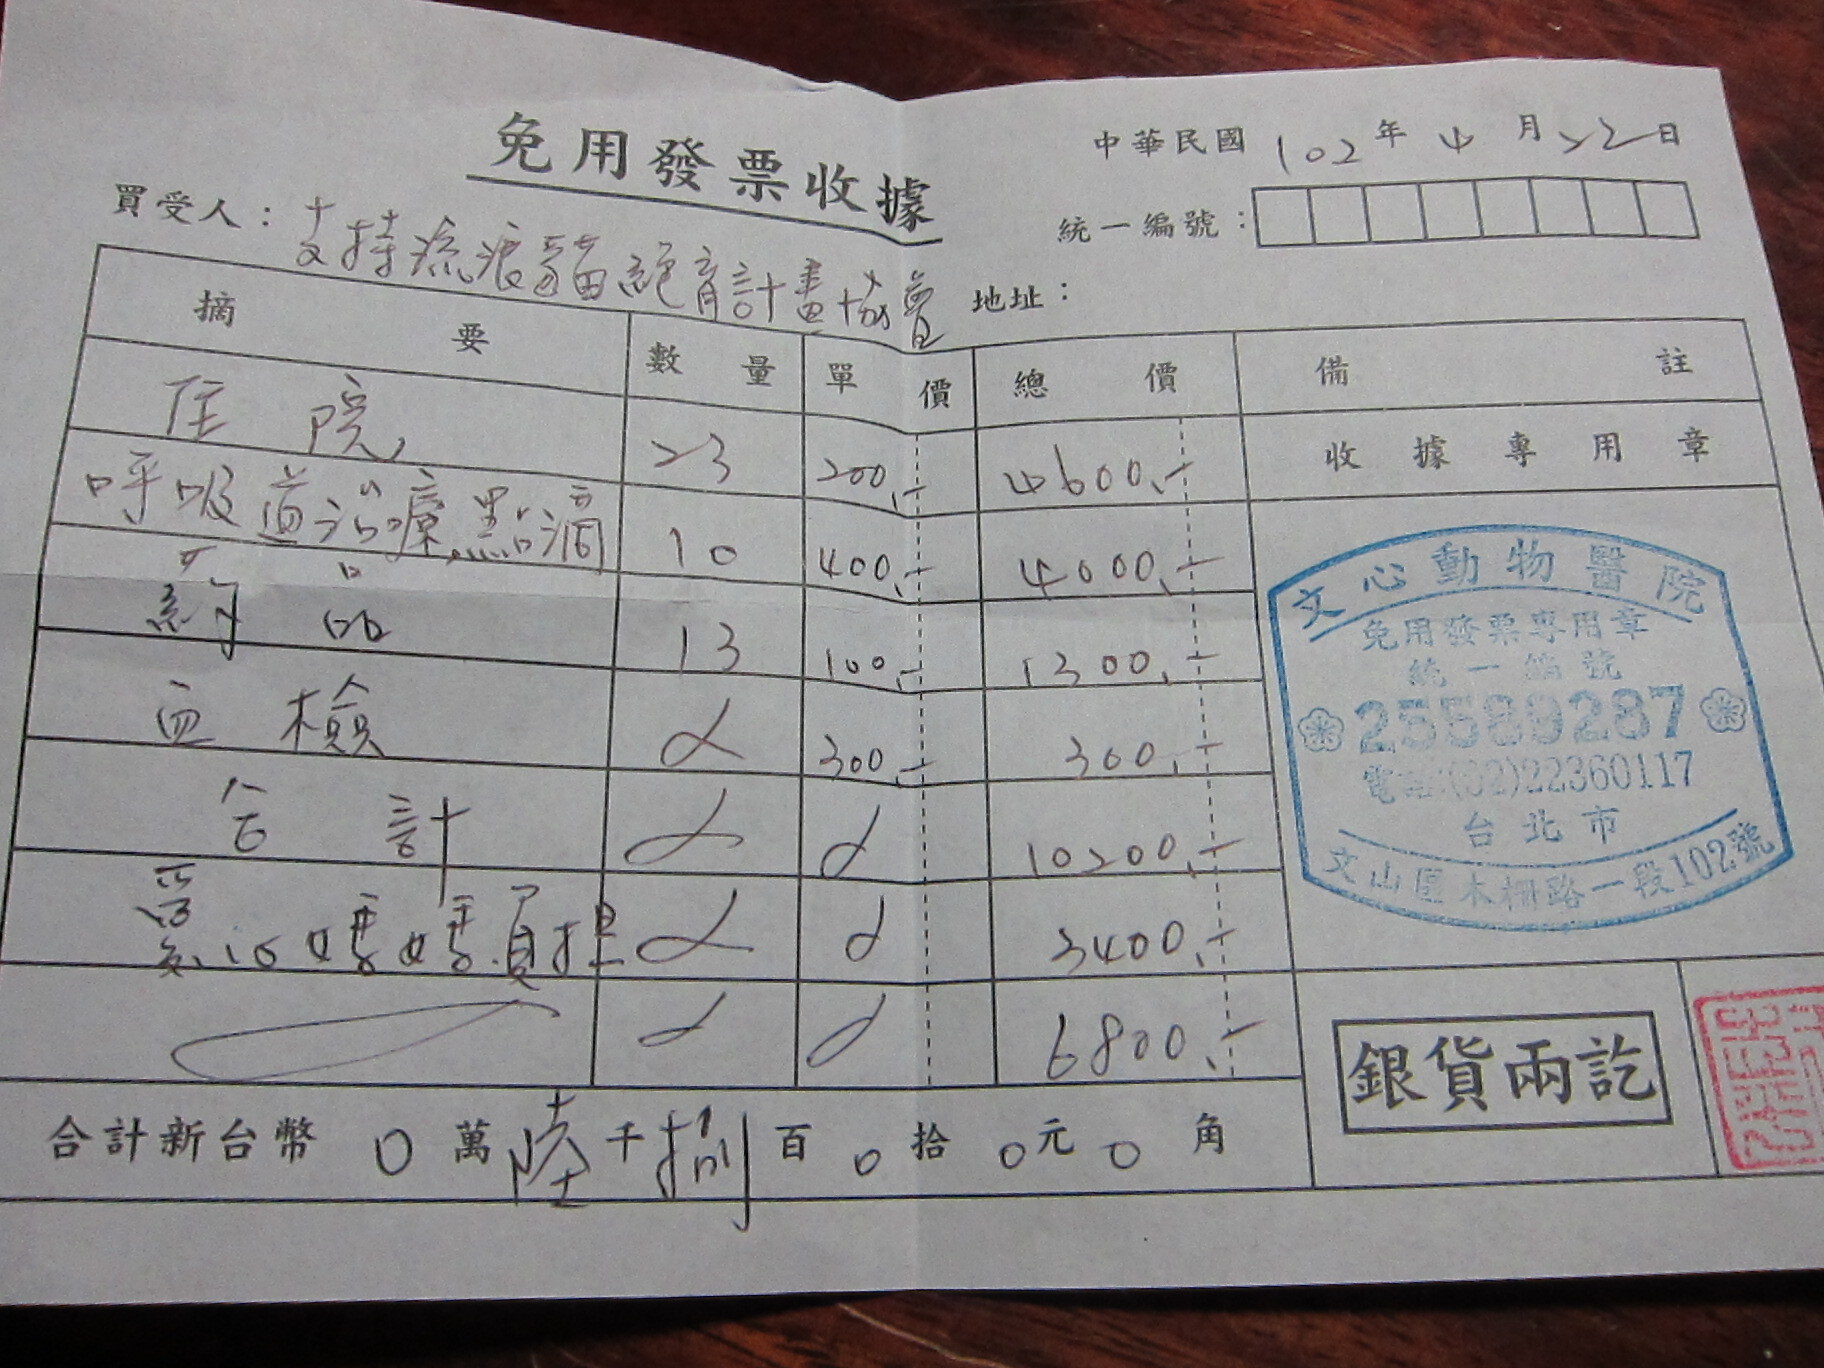 免用發票收據
中華民國102年4月22日
買受人：支持流浪貓絕育計畫協會
統一編號：
地址：
摘要 數量 單價 總價 備註
住院 23 200.- 4600.- 收據專用章
呼吸道治療.點滴 10 400.- 4000.-
藥品 13 100.- 1300.-
血檢 300.- 300.-
合計 10200.-
媽媽負担 3400.-
6800.-
合計新台幣 0 萬 陸 千 捌 百 0 拾 0 元 0 角
文心動物醫院
免用發票專用章
統一編號
25589287
電話:(02)22360117
台北市
文山區木柵路一段102號
銀貨兩訖